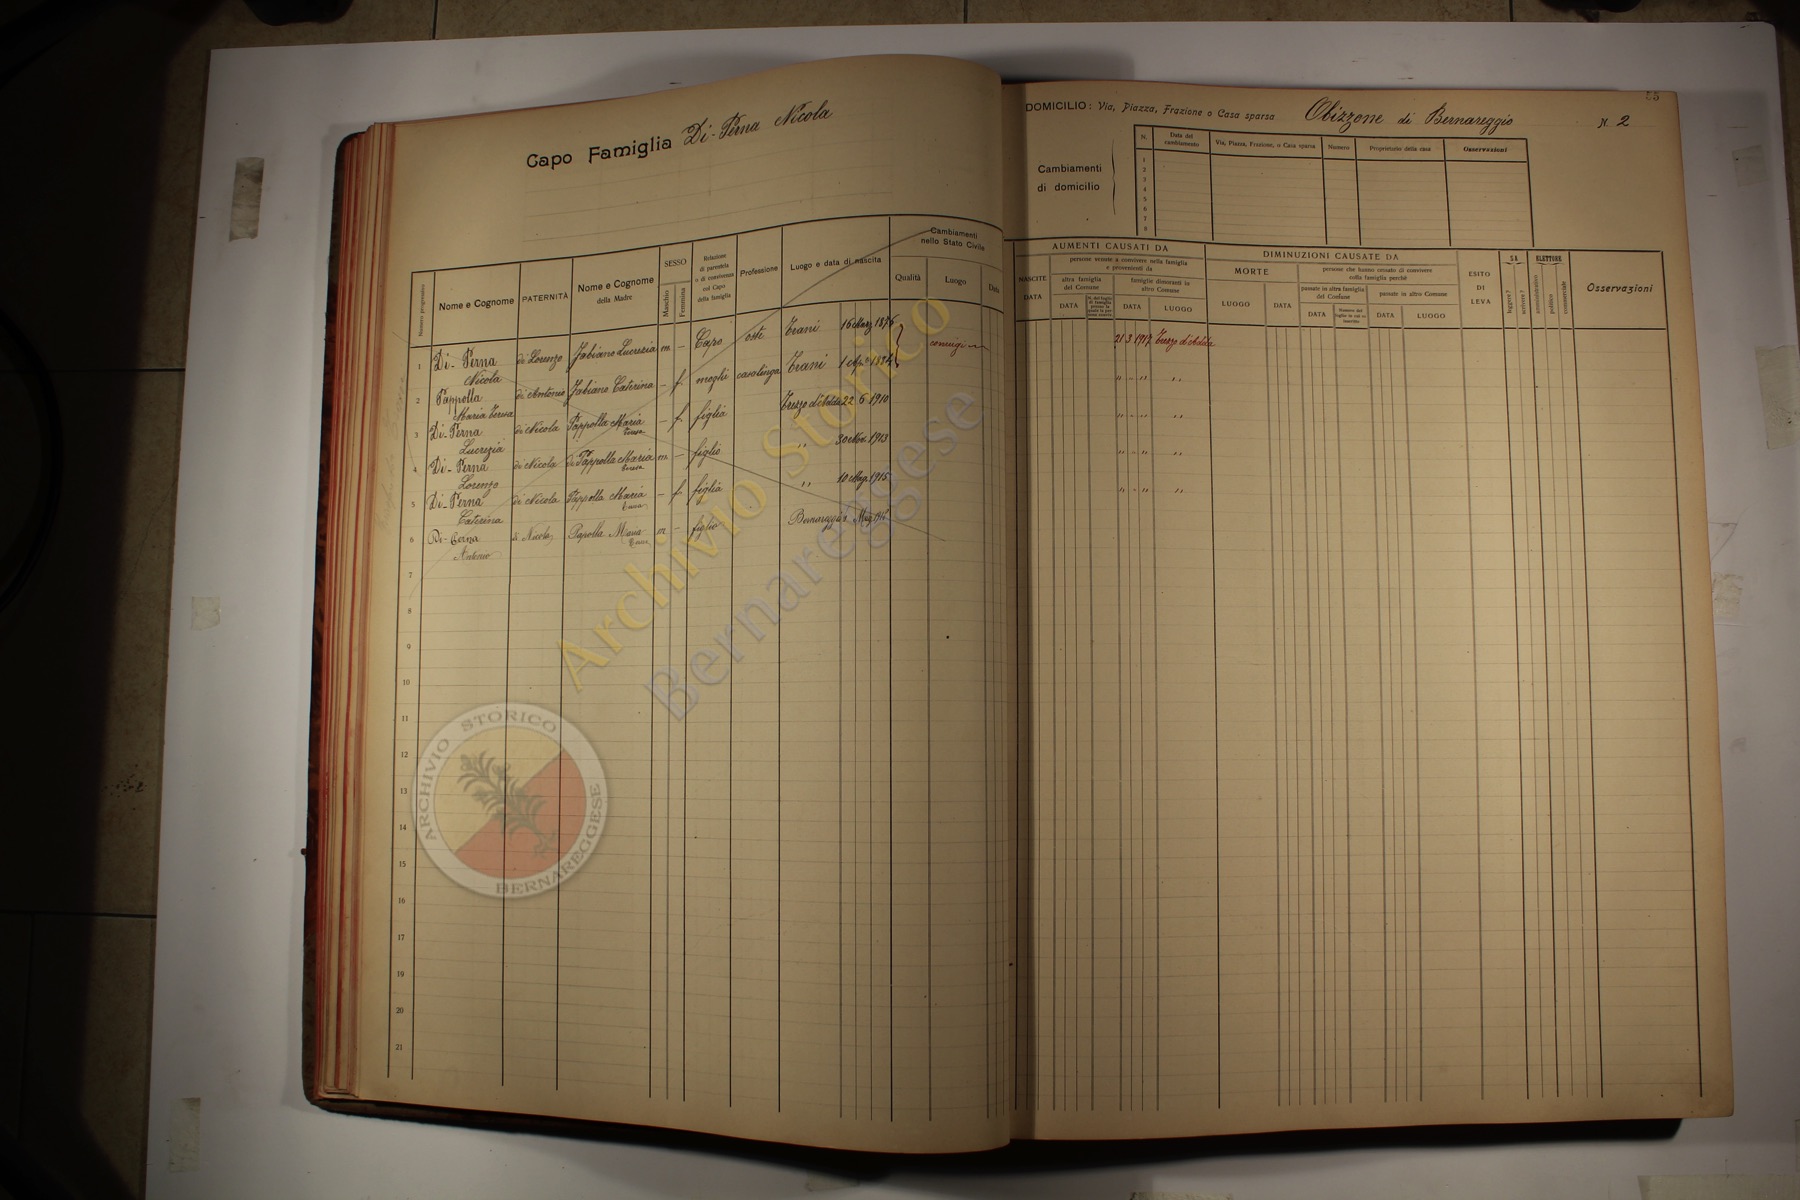 55
Capo Famiglia Di-Perna Nicola
DOMICILIO: Via, Piazza, Frazione o Casa sparsa Obizzone di Bernareggio N. 2
Cambiamenti di domicilio
N. Data del cambiamento Via, Piazza, Frazione, o Casa sparsa Numero Proprietario della casa Osservazioni
1
2
3
4
5
6
7
8
Numero progressivo Nome e Cognome PATERNITÀ Nome e Cognome della Madre SESSO Maschio Femmina Relazione di parentela o di convivenza col Capo della famiglia Professione Luogo e data di nascita Cambiamenti nello Stato Civile Qualità Luogo Data
NASCITE DATA AUMENTI CAUSATI DA persone venute a convivere nella famiglia e provenienti da altra famiglia del Comune DATA famiglie dimoranti in altro Comune DATA LUOGO
DIMINUZIONI CAUSATE DA MORTE LUOGO DATA persone che hanno cessato di convivere colla famiglia perchè passate in altra famiglia del Comune DATA passate in altro Comune DATA LUOGO
ESITO DI LEVA SA leggere? scrivere? ELETTORE amministrativo politico commerciale Osservazioni
1 Di-Perna Nicola di Lorenzo Fabiano Lucrezia m - Capo oste Trani 16 Marz 1876 coniugi 21 3 1917 Trezzo d'Adda
2 Pappolla Maria Teresa di Antonio Fabiano Caterina - f. moglie casalinga Trani 1 Ap.e 1884 " - " "
3 Di-Perna Lucrezia di Nicola Pappolla Maria Teresa - f figlia Trezzo d'Adda 22 6 1910 " - " "
4 Di-Perna Lorenzo di Nicola di Pappolla Maria Teresa m - figlio " 30 Nov. 1913 " - " "
5 Di-Perna Caterina di Nicola Pappolla Maria Teresa - f. figlia " 10 Mag. 1915 " - " "
6 Di-Perna Antonio di Nicola Papolla Maria Teresa m - figlio Bernareggio
7
8
9
10
11
12
13
14
15
16
17
19
20
21
Archivio Storico
Bernareggese
ARCHIVIO STORICO
BERNAREGGESE